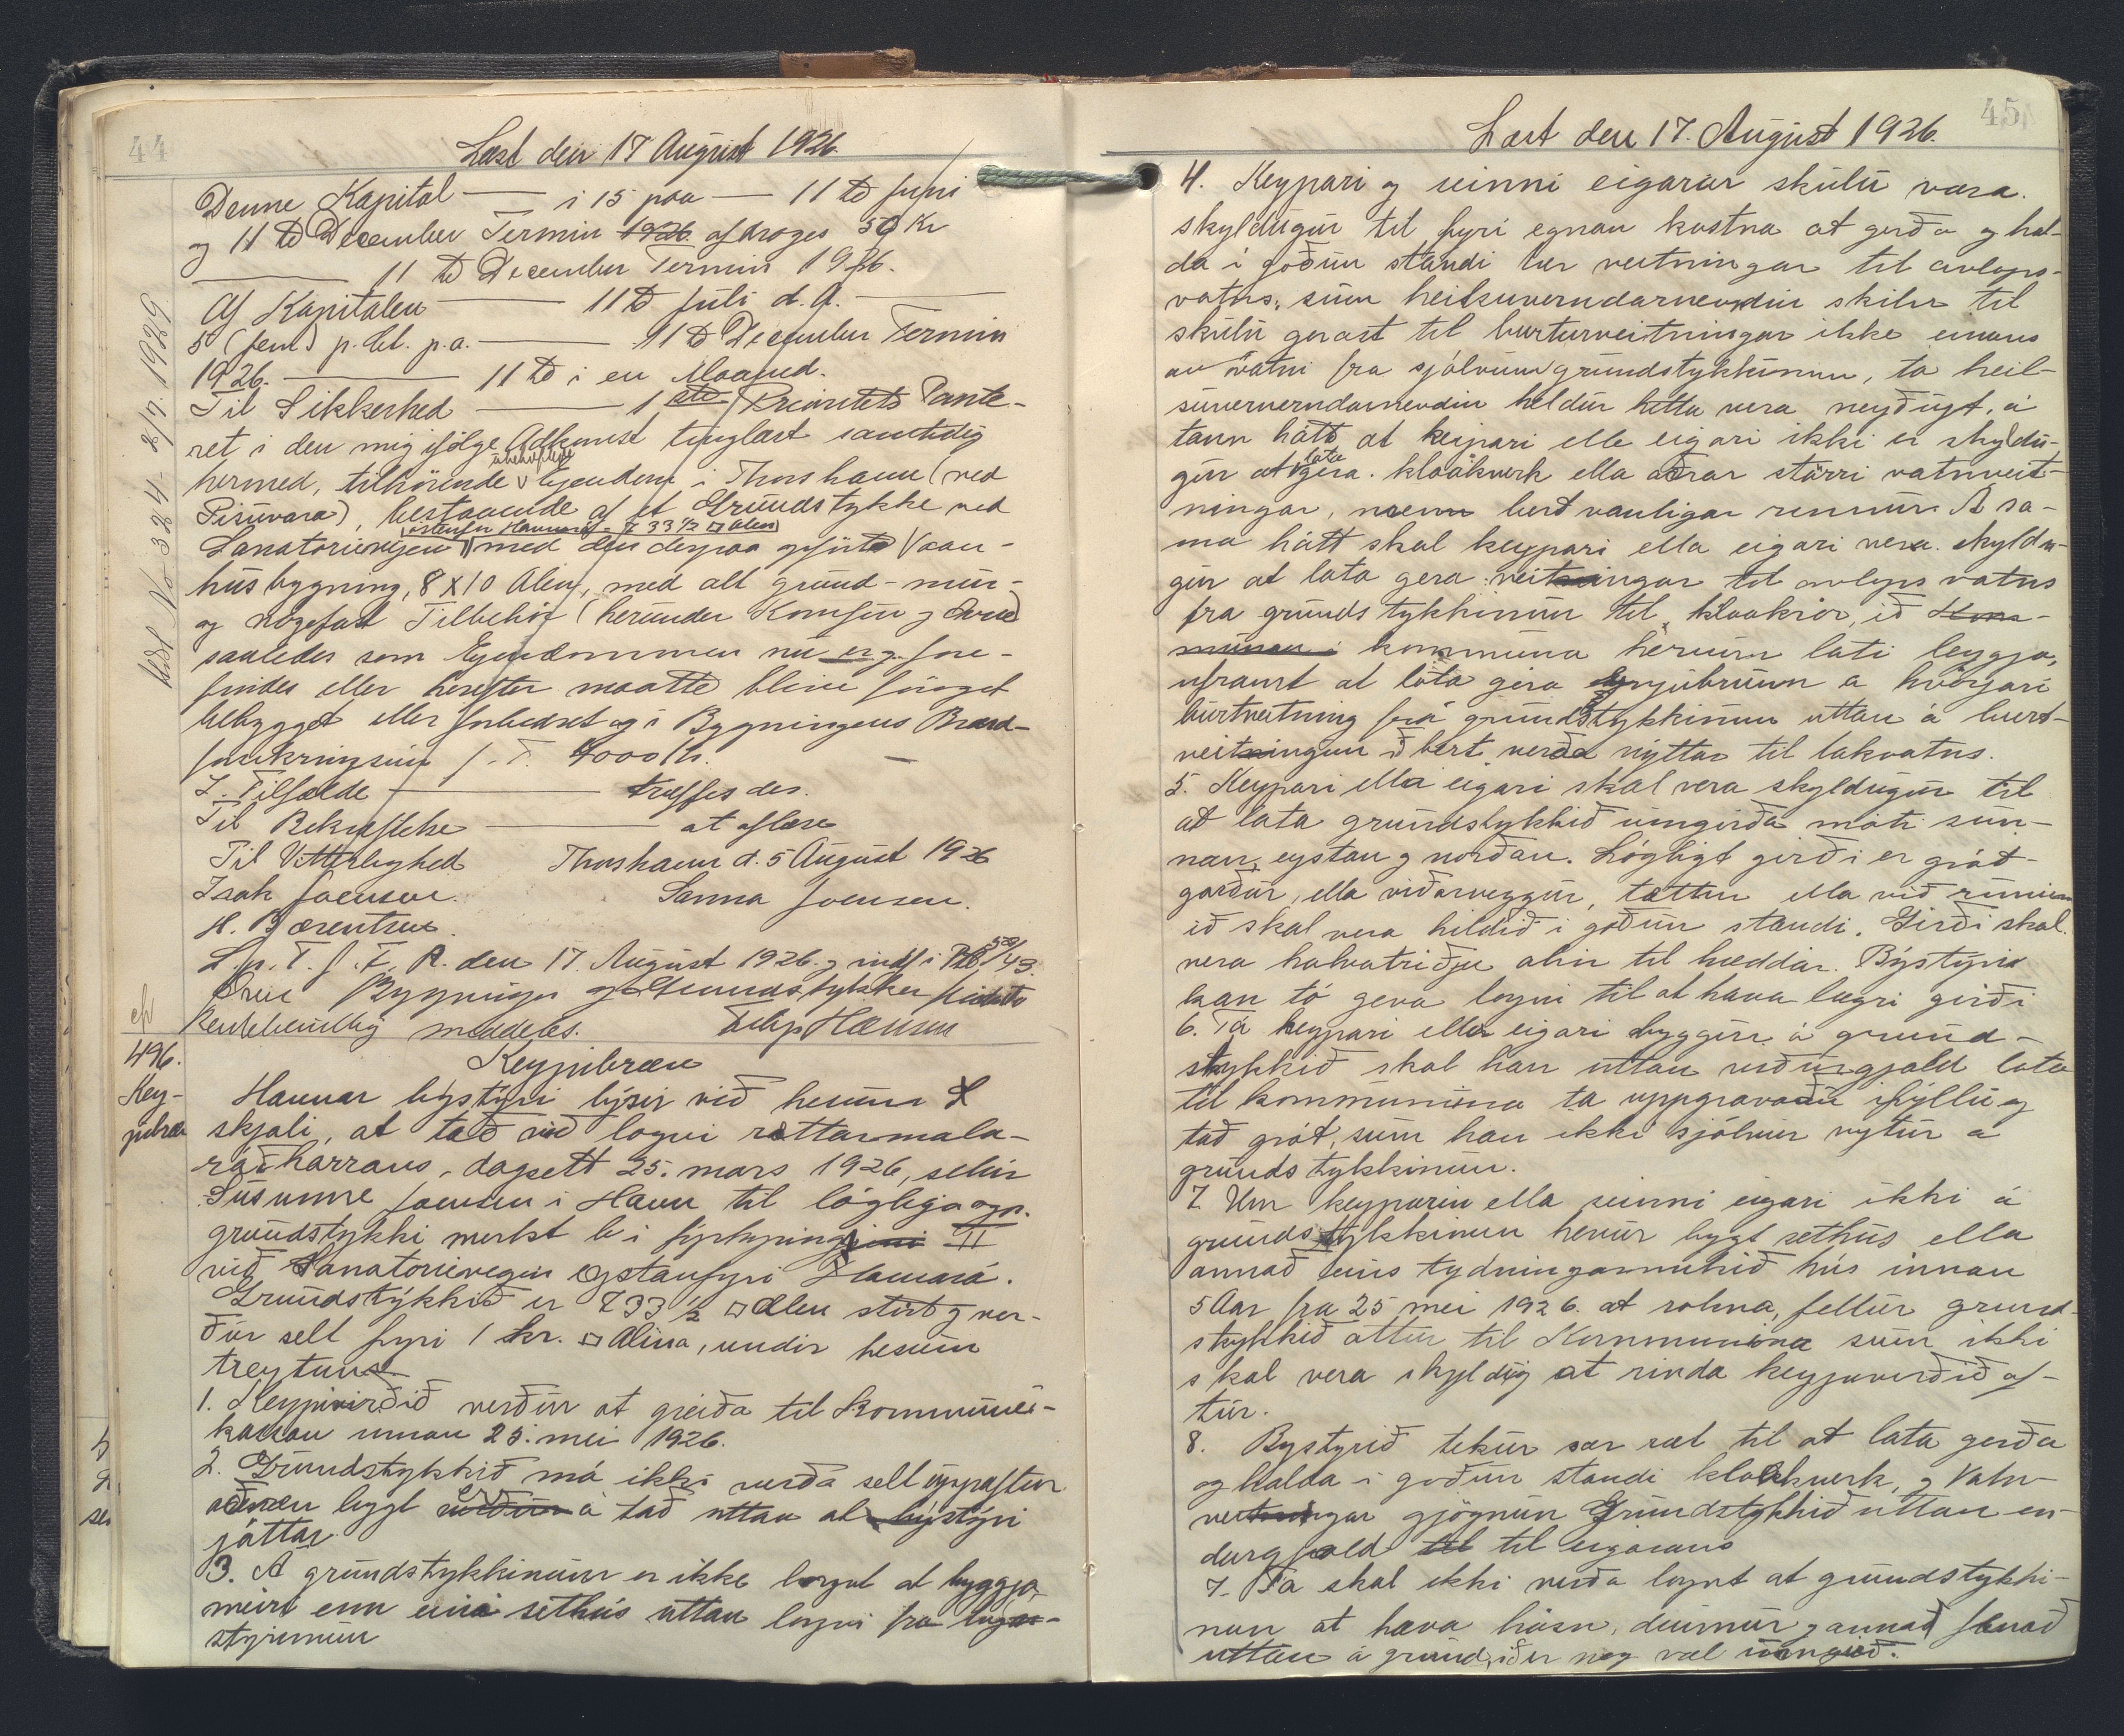 44
Læst den 17 August 1926.
Denne Kapital — i 15 paa — 11 te Juni
og 11 te December Termin 1926 afdrages 50 Kr
— 11 te December Termin 1926.
Af Kapitalen — 11 te Juli d. A. —
5 (fem) p. Ct. p.a. — 11 te December Termin
1926. — 11 te i en Maaned.
Til Sikkerhed — 1ste Prioritets Pante-
ret i den mig ifølge Adkomst tinglæst samtidig
hermed, tilhörende ubehæftede Ejendom i Thorshavn (ved
Pisuvara), bestaaende af et Grundstykke ved
Sanatorievejen östenfor Havnaraa - 733 ½ □ Alen med den derpaa opførte Vaan-
husbygning, 8 x 10 Alen, med alt grund- mur-
og nagefast Tilbehör (herunder Komfur og Ovne)
saaledes som Ejendommen nu er og fore-
findes eller herefter maatte blive foröget
bebygget eller forbedret og i Bygningens Brand-
forsikringsum p. T. 4000 Kr.
I Tilfælde — træffes des.
Til Bekræftelse — at aflæse
Til Vitterlighed Thorshavn d. 5 August 1926
Isak Joensen. Sanna Joensen.
H. Bærentsen.
L. p. T. f. F. R. den 17. August 1926. og indf. i
Bygninger og Grundstykker
meddeles.
496.
Key-
pibræv
Keypibræv
Havnar býstýri lýsir við hesum
skjali, at tað við loyvi rættarmala-
ráðharrans, dagsett 25. mars 1926, selur
Susanne Joensen i Havn til lógliga ogn.
grundstykki merkt b i
við Sanatorievegin eystanfyri Havnará.
Grundstykkið er 733 ½ □ Alen stórt og ver-
ður selt fyri 1 kr. □ Alina, undir hesum
treytum
1. Keypivirðið verður at greiða til Kommunu-
kassan innan 25. mei 1926.
2. Grundstykkið má ikki verða selt uppaftur
aðrenn bygt er á tað uttan at býstýri
játtar
3. Á grundstykkinum er ikke loyvt at byggja
meiri enn eini sethús uttan loyvi frá
stýrinum
45
Læst den 17. August 1926.
4. Keypari og seinni eigarar skulu vara.
skyldugur til fyri egnan kostna at gerða og hal-
da i goðum standi tær veitningar til avlops-
vatns, sum heilsuverndarnevndin skilar til
skulu gerast til burturveitningar ikke einans
av vatni fra sjálvum grundstykkinum, ta heil-
suververndarnevndin heldur hetta vera neyðugt, á
tann hátt at keypari ella eigari ikki er skyldu-
gur at lata gera kloakverk ella aðrar störri vatnveit-
ningar, men bert vanligar rennur. Á sa-
ma hátt skal keypari ella eigari vera skyldu-
gur at lata gera veitningar til avlops vatns
fra grundstykkinum til kloakrør, ið
kommuna hervum lati leggja,
uframt at láta gera á hvörjari
burtveitning frá grundstykkinum uttan á burt-
veitningum ið bert verða nýttar til takvatns.
5. Keypari ella eigari skal vera skyldugur til
at lata grundstykkið umgerða móti sun-
nan, eystan og norðan. Lógligt gerði er grót-
garður, ella viðarveggur, tættur ella við
ið skal vera hildið i goðum standi. Gerði skal
vera halvatriðju alin til hæddar. Býstýrið
kan tó geva loyvi til at hava lægri gerði
6. Tá keypari ella eigari byggir á grund-
stykkið skal han uttan viðurgjald lata
til kommununa ta uppgravaðu ifyllu og
tað grót, sum han ikki sjálvur nýtur á
grundstykkinum.
7. Um keyparin ella seinni eigari ikki á
grundstykkinum hevur bygt sethús ella
annað líns tydningarmikið hús innan
5 Aar fra 25 mei 1926. at rokna, fellur grund-
stykkið aftur til Kommununa sum ikki
skal vera skyldug at rinda keypuverðið af-
tur.
8. Bystyrið tekur sær ræt til at lata gerða
og halda i goðum standi kloakverk, og Vatn-
veitningar gjögnum Grundstykkið uttan en-
durgjald til eigarans
7. Tá skal ikki verða loyvt at grundstykki-
num at hava høsn, dunnur og annað fenað
uttan á grund, ið er nog væl umgerð.